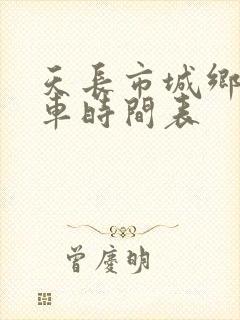 天長市城鄉
車時間表
曾慶明